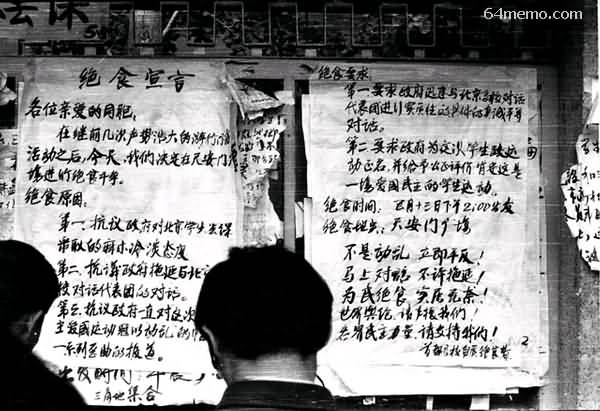 64memo.com
绝食宣言
各位亲爱的同胞:
在继前几次声势浩大的游行
活动之后,今天,我们决定在天安门广
场进行绝食斗争。
绝食原因:
第一、抗议政府对北京学生罢课
采取的麻木冷淡态度
第二、抗议政府拖延与北京
校对话代表团的对话。
第三、抗议政府一直对这次
主爱国运动冠以动乱的
一系列歪曲的报道。
出发时间:
三角地集合
绝食要求:
第一要求政府迅速与北京高校对话
代表团进行实质性的具体的真诚平等
对话。
第二要求政府为这次学生
动正名,并给予公正评价肯定这是
一场爱国民主的学生运动。
绝食时间:五月十三日下午2:00出发
绝食地点:天安门广场
不是动乱 立即平反!
马上对话 不许拖延!
为民绝食 实属无奈!
世界舆论,请声援我们!
各界民主力量,请支持我们!